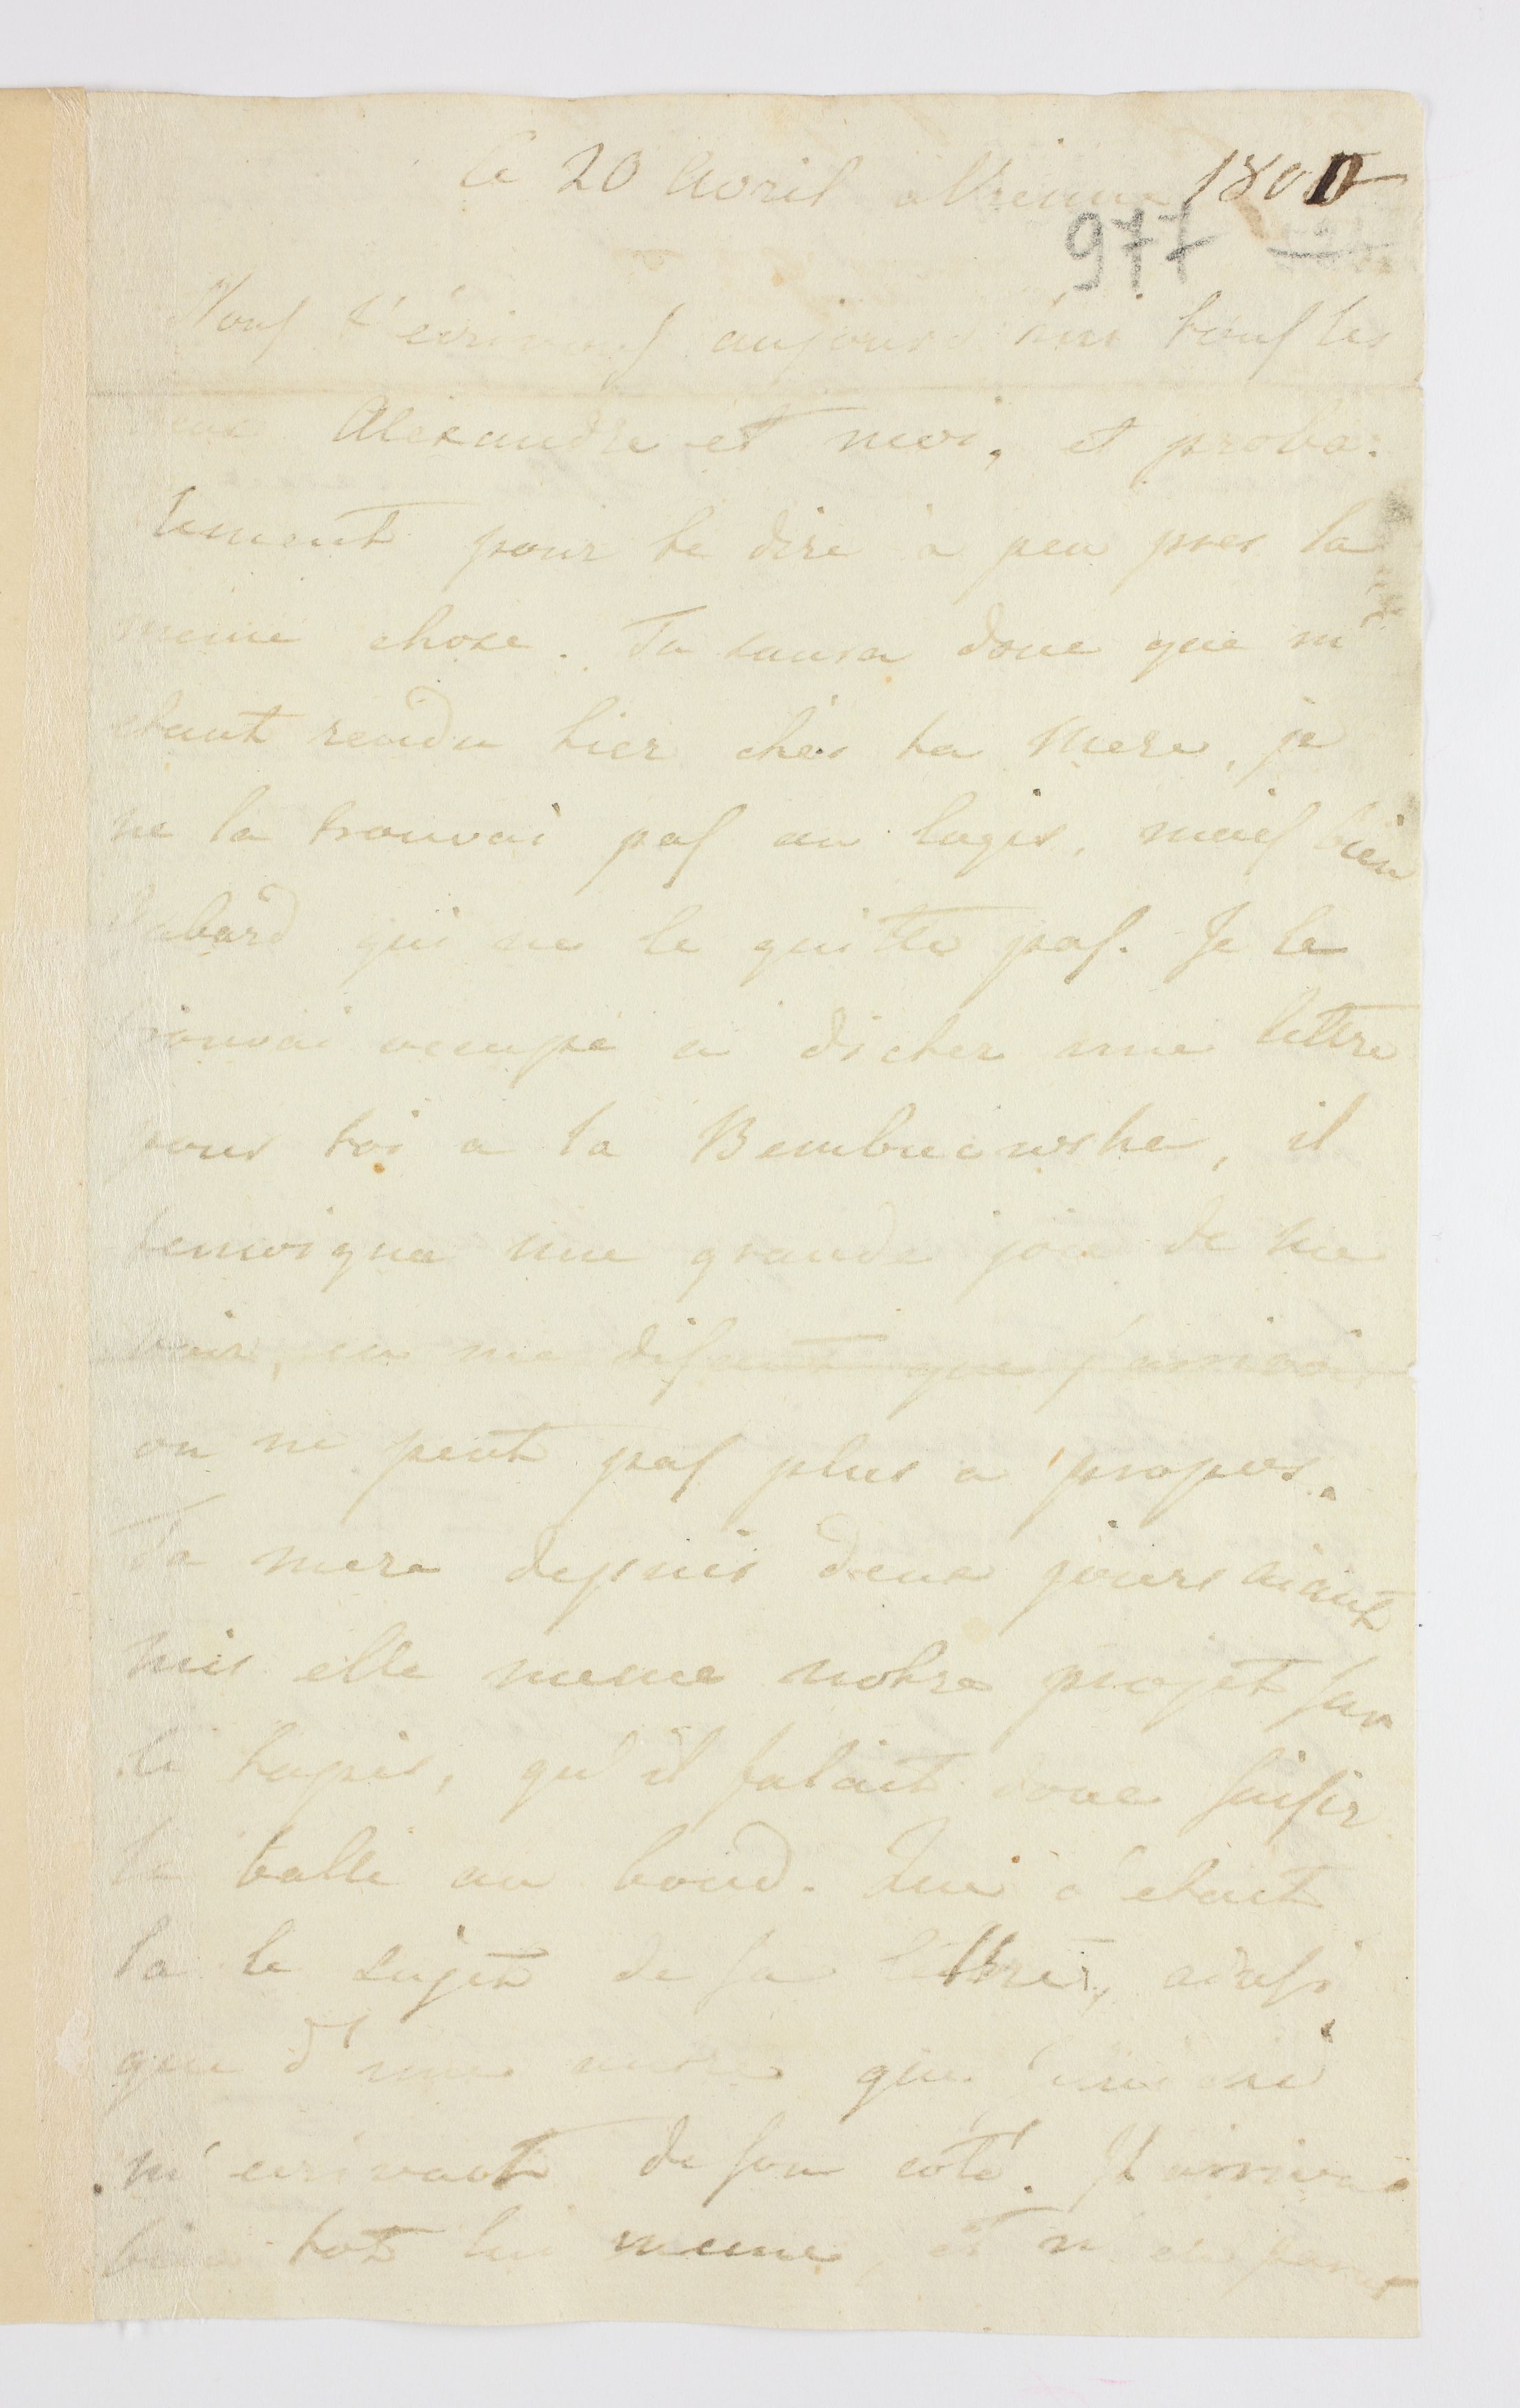 Ce 20 Avril a Vienne 1800
977
Nous t'ecrivons aujourd'hui tous les
deux Alexandre et moi, et proba:
blement pour te dire à peu pres la
meme chose. Tu saura donc que m'
etant rendu hier chés ta Mere, je
ne la trouvai pas au logis, mais bien
l'abard qui ne le quitte pas. Je le
trouvai occupé a dicter une lettre
pour toi a la
temoigna une grande joie de me
voir, en me disant que j'arrivai
on ne peut pas plus a propos.
Ta mere depuis deux jours aiant
mis elle meme notre projet sur
le tapis, qu'il falait donc saisir
la balle au bond. Que c'etait
la le sujet de sa lettre, ainsi
que d'une autre que
m'ecrivait de son coté. Il arriva
bien tot lui meme, et